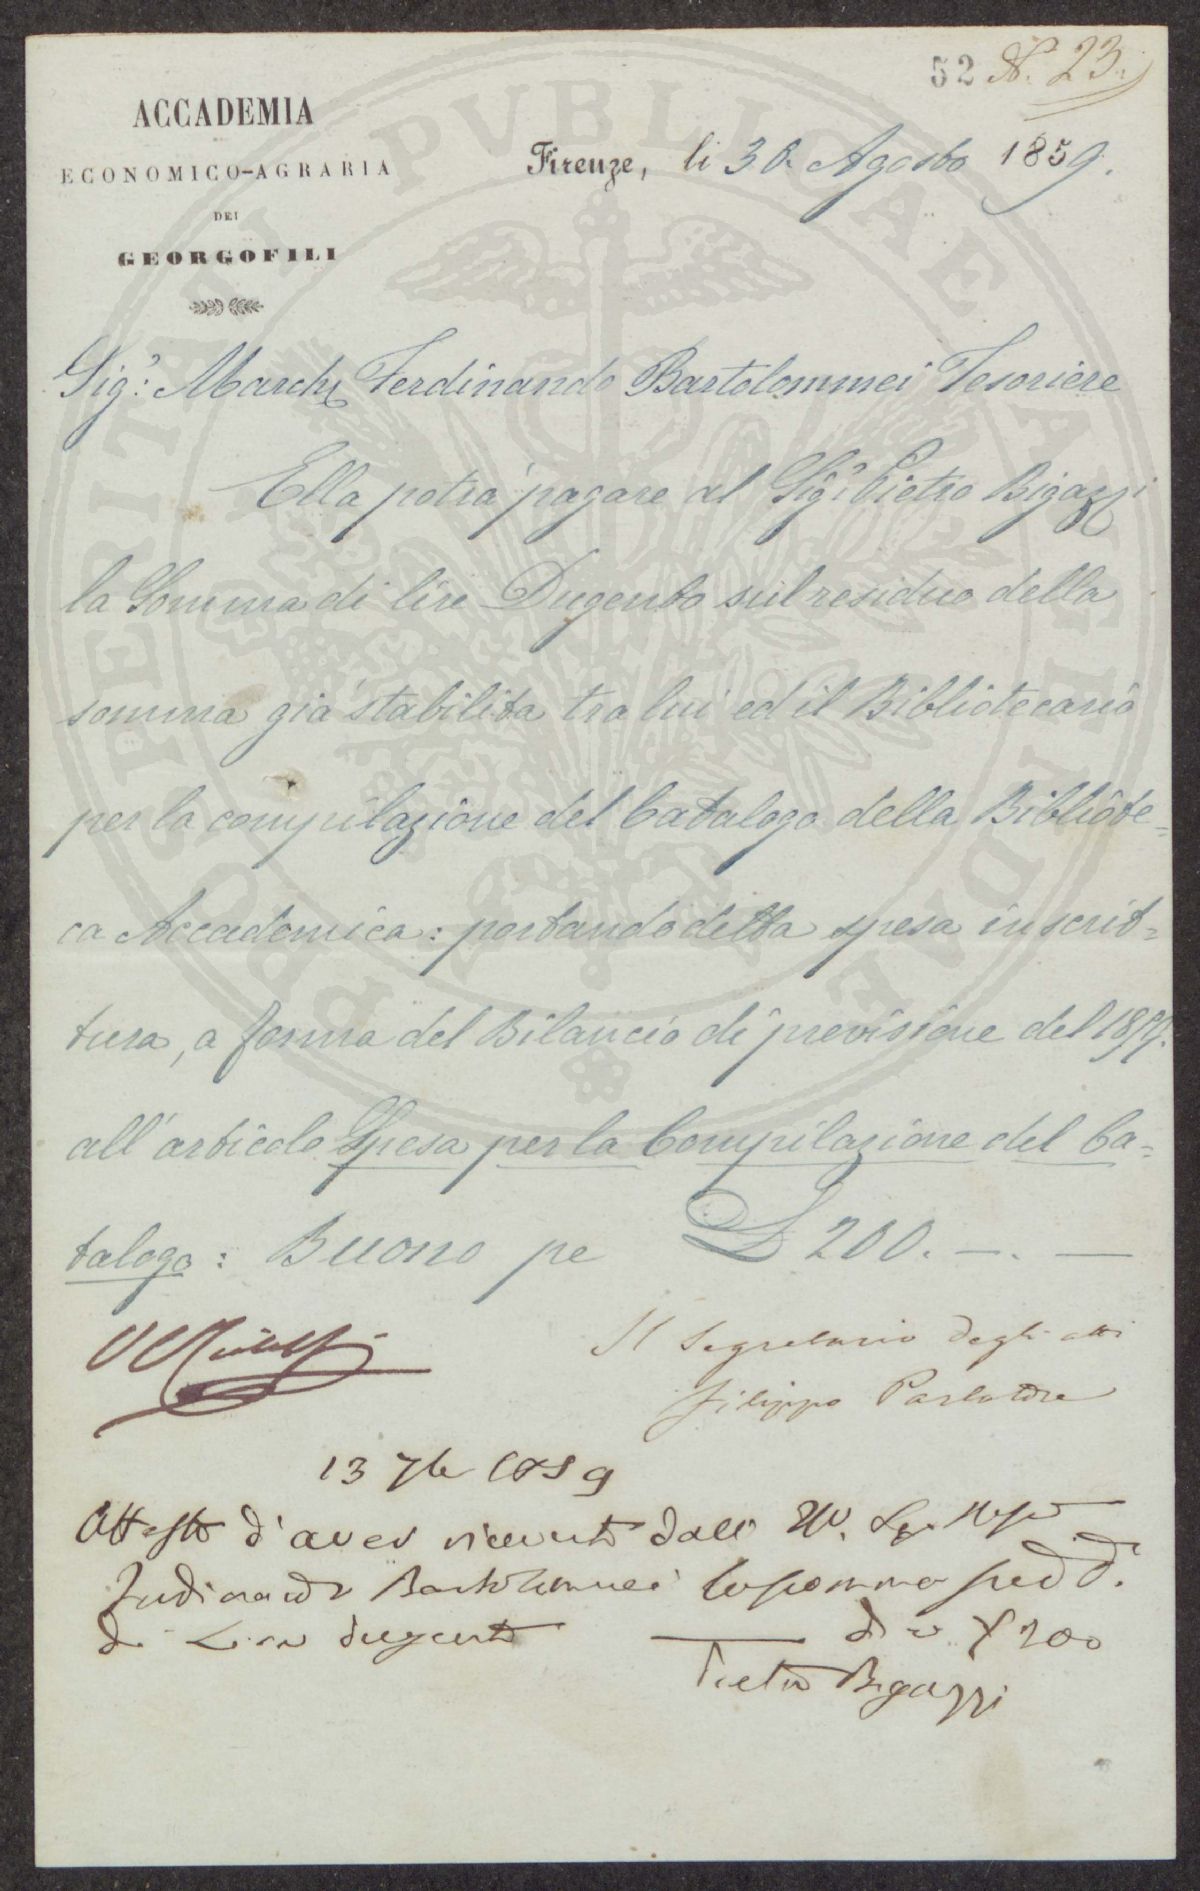 52 N. 23.
ACCADEMIA
ECONOMICO-AGRARIA
DEI
GEORGOFILI
Firenze, li 30. Agosto 1859.
PROSPERITATI PVBLICAE AVGENDAE
Sig.r: March Ferdinando Bartolommei Tesoriere
Ella potrà pagare al Sig.r Pietro Bigazzi
la Somma di lire Dugento sul residuo della
somma già stabilita tra lui ed il Bibliotecario
per la compilazione del Catalogo della Bibliote=
ca Accademica: portando detta spesa in scrit=
tura, a forma del Bilancio di previsione del 1859.
all'articolo Spesa per la Compilazione del Ca=
talogo: Buono pe £ 200. —. —
Il Segretario degli atti
Filippo Parlatore
13 7bre 1859
Attesto d'aver ricevuto dall' Sig.
Ferdinando Bartolommei la somma
di Lire dugento — £ 200
Pietro Bigazzi